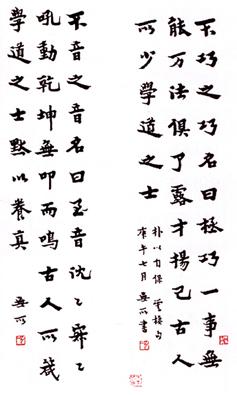 不巧之巧名曰極巧一事無
能万法俱了露才揚己古人
所少學道之士
朴以自保 雲棲句
庚午七月 無所書
不音之音名曰至音沈〻寂〻
吼動乾坤無叩而鳴古人所箴
學道之士默以養真
無所